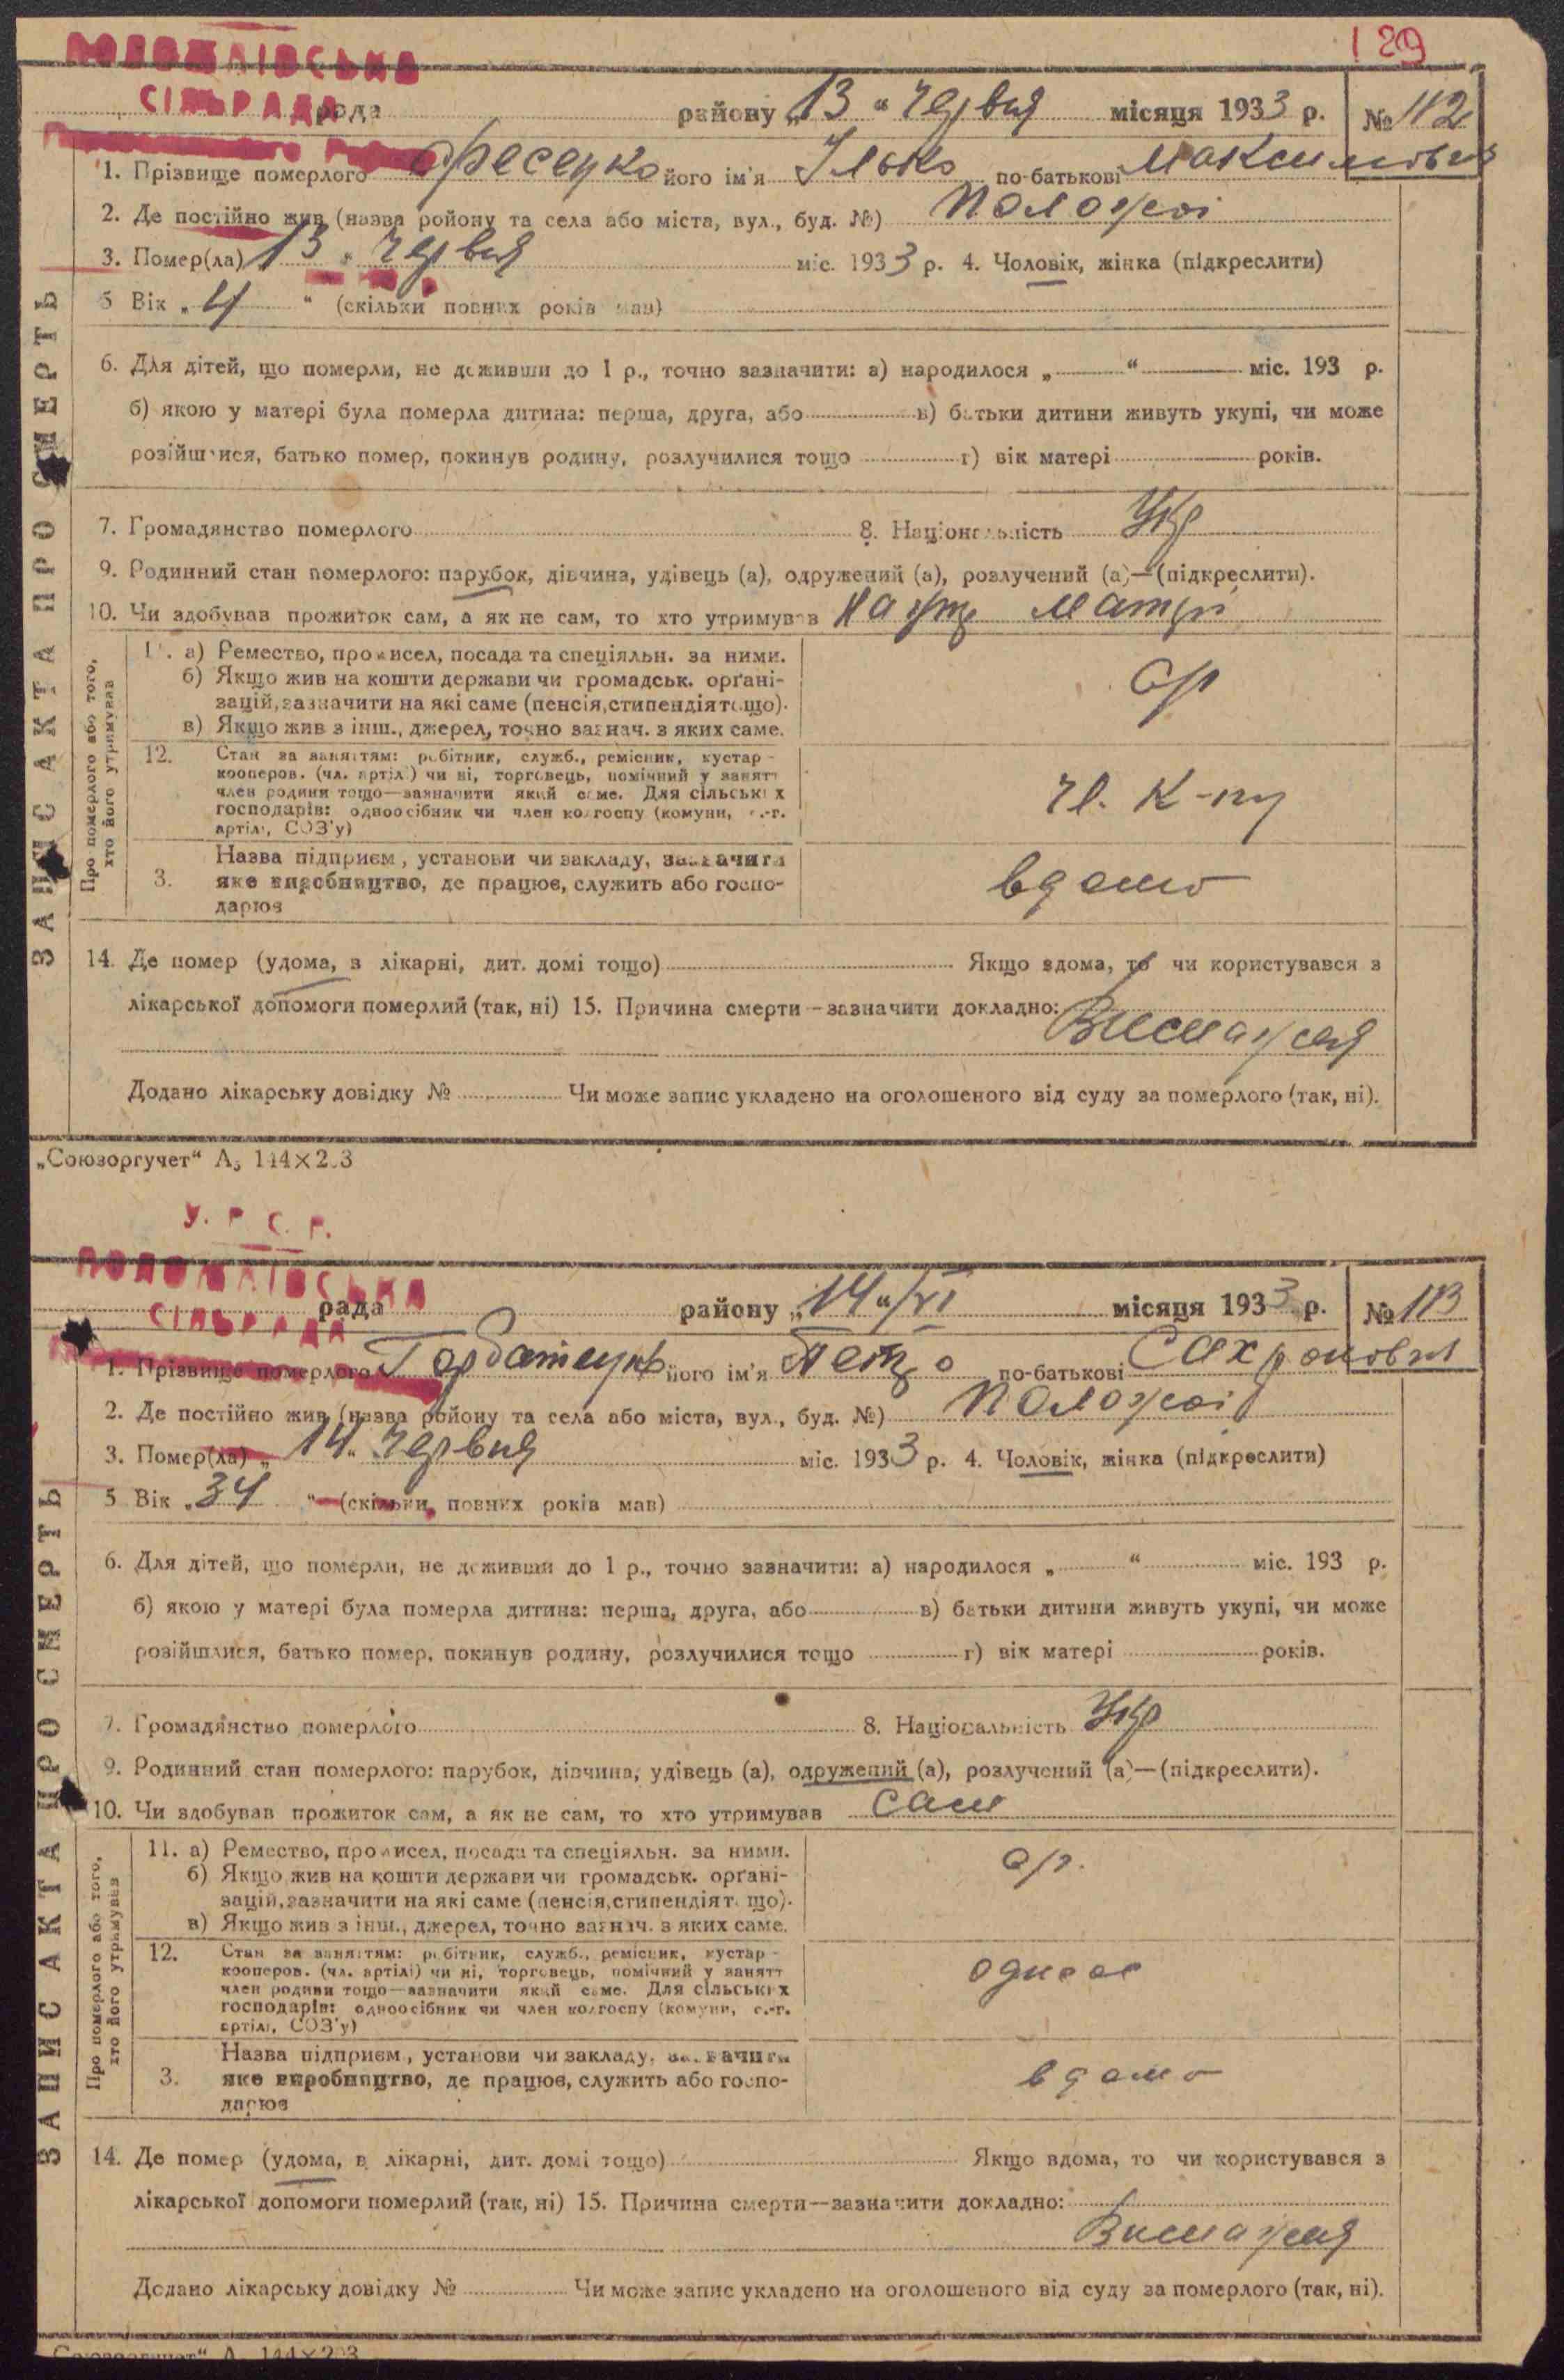 129
ПОЛОЖАЇВСЬКА
СІЛЬРАДА
рада району „13“ Червня місяця 1933 р. № 112
1. Прізвище померлого Фесенко його ім'я Ілько по-батькові Максимович
2. Де постійно жив (назва ройону та села або міста, вул., буд. №) Положаї
3. Помер(ла) 13 „ Червня міс. 1933 р. 4. Чоловік, жінка (підкреслити)
5 Вік „4“ (скільки повних років мав)
6. Для дітей, що померли, не доживши до 1 р., точно зазначити: а) народилося „ “ міс. 193 р.
б) якою у матері була померла дитина: перша, друга, або в) батьки дитини живуть укупі, чи може
розійшлися, батько помер, покинув родину, розлучилися тощо г) вік матері років.
7. Громадянство померлого 8. Національність Укр
9. Родинний стан померлого: парубок, дівчина, удівець (а), одружений (а), розлучений (а)—(підкреслити).
10. Чи здобував прожиток сам, а як не сам, то хто утримував матери
ЗАПИС АКТА ПРО СМЕРТЬ
Про померлого або того, хто його утримував
11. а) Ремество, промисел, посада та спеціяльн. за ними.
б) Якщо жив на кошти держави чи громадськ. орґані-
зацій, зазначити на які саме (пенсія, стипендія тощо).
в) Якщо жив з інш., джерел, точно зазнач. з яких саме.
12. Стан за заняттям: робітник, служб., ремісник, кустар -
кооперов. (чл. артілі) чи ні, торговець, помічний у занятт
член родини тощо—зазначити який саме. Для сільських
господарів: одноосібник чи член колгоспу (комуни, с.-г.
артілі, СОЗ'у)
чл. К-пу
3. Назва підприєм., установи чи закладу, зазначити
яке виробництво, де працює, служить або госпо-
дарює
вдома
14. Де помер (удома, в лікарні, дит. домі тощо) Якщо вдома, то чи користувався з
лікарської допомоги померлий (так, ні) 15. Причина смерти—зазначити докладно:
Виснаження
Додано лікарську довідку № Чи може запис укладено на оголошеного від суду за померлого (так, ні).
„Союзоргучет“ А5 144×203
У. Р С. Р.
ПОЛОЖАЇВСЬКА
СІЛЬРАДА
рада району „14“/VI місяця 1933 р. № 113
1. Прізвище померлого Горбатенко його ім'я Петро по-батькові
2. Де постійно жив (назва ройону та села або міста, вул., буд. №) Положаї
3. Помер(ла) „ 14 “ Червня міс. 1933 р. 4. Чоловік, жінка (підкреслити)
5 Вік „34“ (скільки повних років мав)
6. Для дітей, що померли, не доживши до 1 р., точно зазначити: а) народилося „ “ міс. 193 р.
б) якою у матері була померла дитина: перша, друга, або в) батьки дитини живуть укупі, чи може
розійшлися, батько помер, покинув родину, розлучилися тощо г) вік матері років.
7. Громадянство померлого 8. Національність Укр
9. Родинний стан померлого: парубок, дівчина, удівець (а), одружений (а), розлучений (а)—(підкреслити).
10. Чи здобував прожиток сам, а як не сам, то хто утримував сам
ЗАПИС АКТА ПРО СМЕРТЬ
Про померлого або того, хто його утримував
11. а) Ремество, промисел, посада та спеціяльн. за ними.
б) Якщо жив на кошти держави чи громадськ. орґані-
зацій, зазначити на які саме (пенсія, стипендія тощо).
в) Якщо жив з інш., джерел, точно зазнач. з яких саме.
12. Стан за заняттям: робітник, служб., ремісник, кустар -
кооперов. (чл. артілі) чи ні, торговець, помічний у занятт
член родини тощо—зазначити який саме. Для сільських
господарів: одноосібник чи член колгоспу (комуни, с.-г.
артілі, СОЗ'у)
одноос
3. Назва підприєм., установи чи закладу, зазначити
яке виробництво, де працює, служить або госпо-
дарює
вдома
14. Де помер (удома, в лікарні, дит. домі тощо) Якщо вдома, то чи користувався з
лікарської допомоги померлий (так, ні) 15. Причина смерти—зазначити докладно:
Виснаження
Додано лікарську довідку № Чи може запис укладено на оголошеного від суду за померлого (так, ні).
„Союзоргучет“ А 144×203